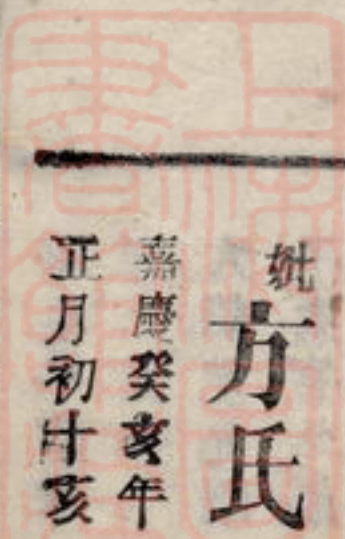 妣方氏
嘉慶癸亥年
正月初什亥